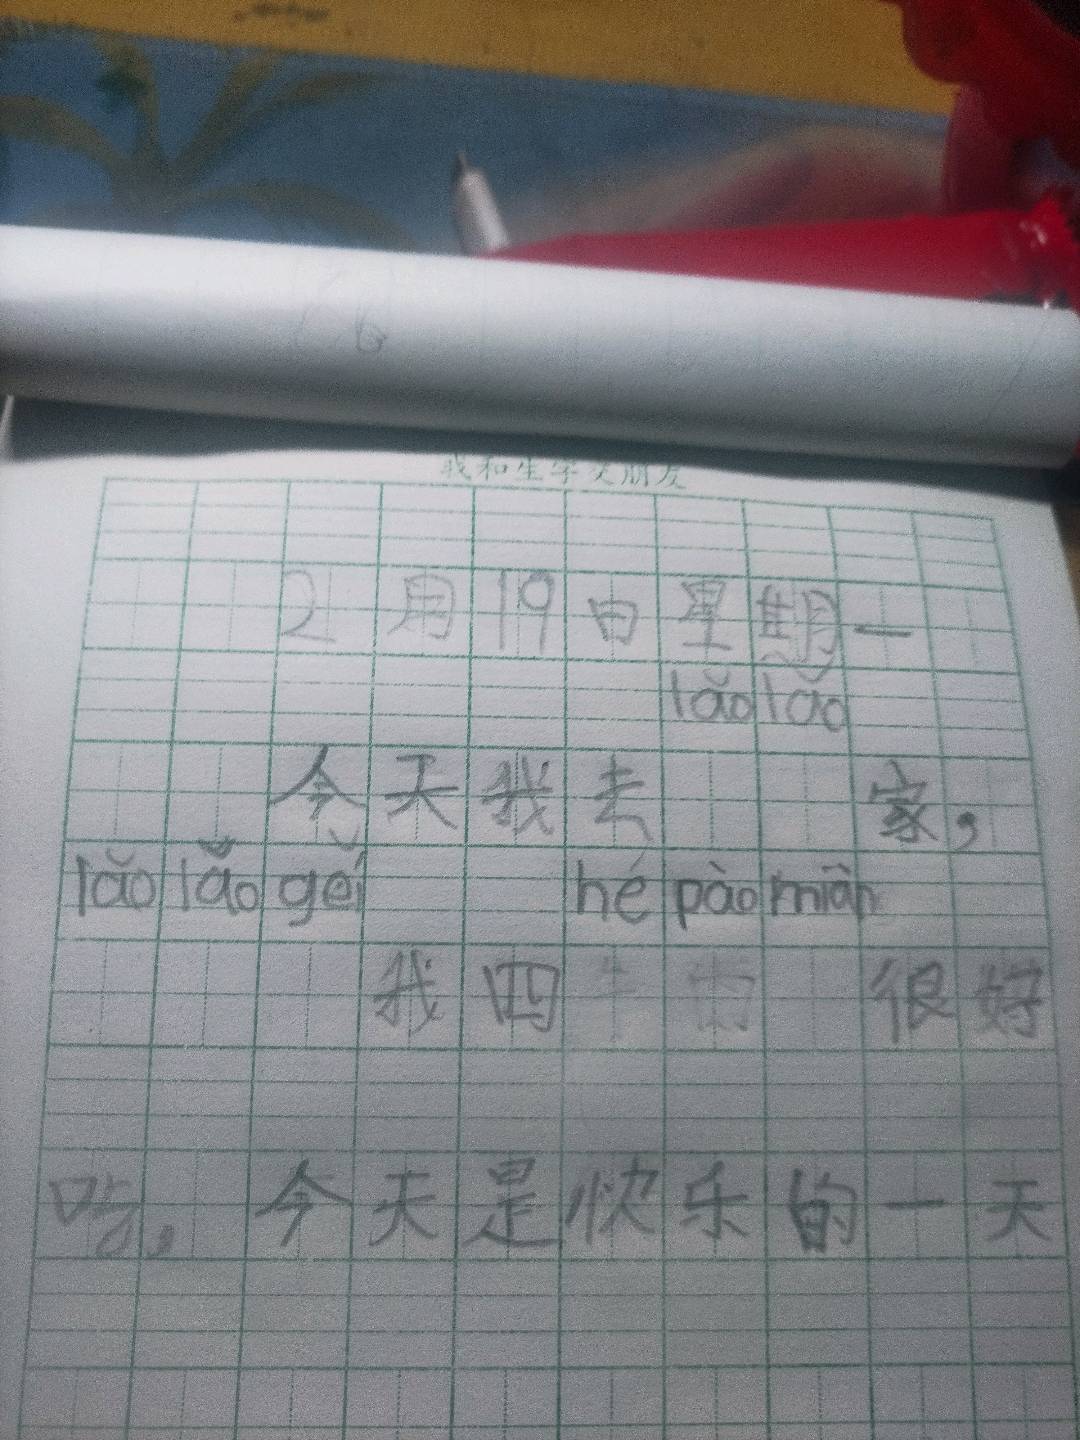 我和生字交朋友
2月19日星期一
lǎo lǎo
今天我去 家，
lǎo lǎo gěi hé pào miàn
我 很好
吃，今天是快乐的一天